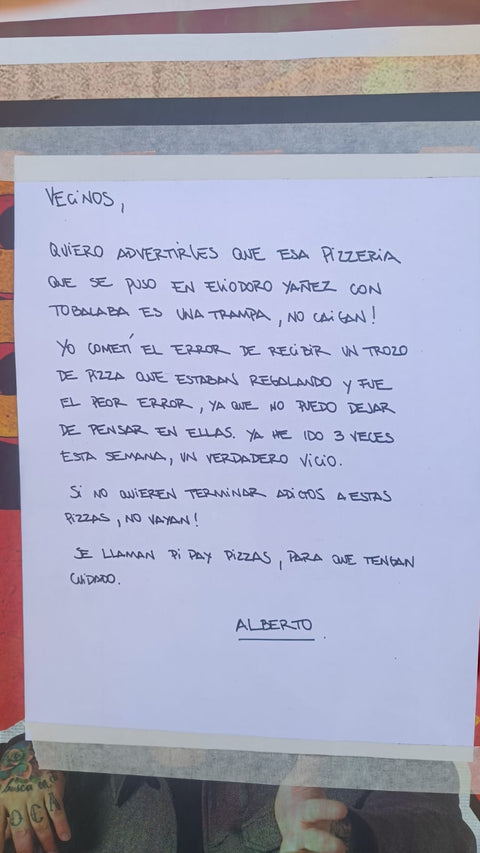 VECINOS,
QUIERO ADVERTIRLES QUE ESA PIZZERIA
QUE SE PUSO EN ELIODORO YAÑEZ CON
TOBALABA ES UNA TRAMPA, NO CAIGAN!
YO COMETÍ EL ERROR DE RECIBIR UN TROZO
DE PIZZA QUE ESTABAN REGALANDO Y FUE
EL PEOR ERROR, YA QUE NO PUEDO DEJAR
DE PENSAR EN ELLAS. YA HE IDO 3 VECES
ESTA SEMANA, UN VERDADERO VICIO.
SI NO QUIEREN TERMINAR ADICTOS A ESTAS
PIZZAS, NO VAYAN!
SE LLAMAN PI PAY PIZZAS, PARA QUE TENGAN
CUIDADO.
ALBERTO.
busca
OCA